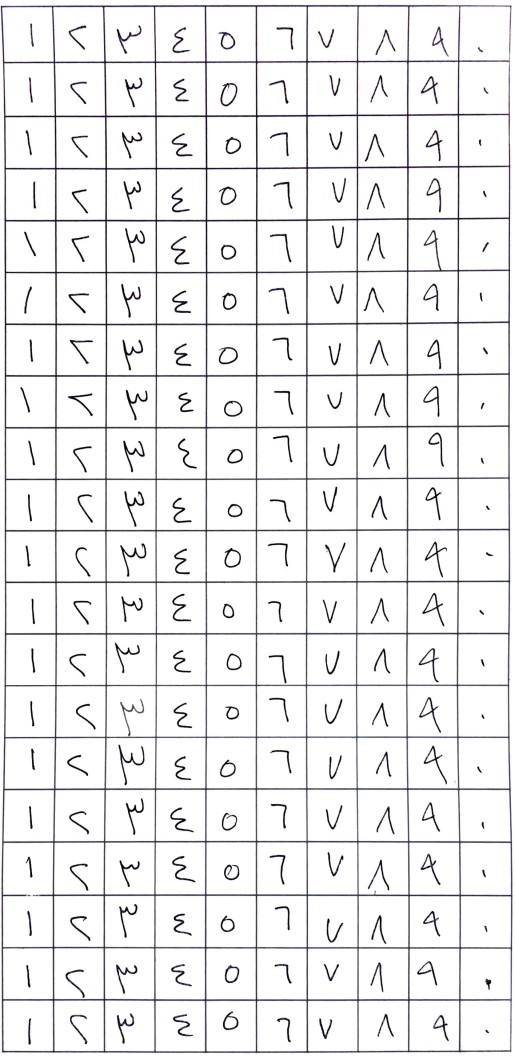 ١ ٢ ٣ ٤ ٥ ٦ ٧ ٨ ٩ ٠
١ ٢ ٣ ٤ ٥ ٦ ٧ ٨ ٩ ٠
١ ٢ ٣ ٤ ٥ ٦ ٧ ٨ ٩ ٠
١ ٢ ٣ ٤ ٥ ٦ ٧ ٨ ٩ ٠
١ ٢ ٣ ٤ ٥ ٦ ٧ ٨ ٩ ٠
١ ٢ ٣ ٤ ٥ ٦ ٧ ٨ ٩ ٠
١ ٢ ٣ ٤ ٥ ٦ ٧ ٨ ٩ ٠
١ ٢ ٣ ٤ ٥ ٦ ٧ ٨ ٩ ٠
١ ٢ ٣ ٤ ٥ ٦ ٧ ٨ ٩ ٠
١ ٢ ٣ ٤ ٥ ٦ ٧ ٨ ٩ ٠
١ ٢ ٣ ٤ ٥ ٦ ٧ ٨ ٩ ٠
١ ٢ ٣ ٤ ٥ ٦ ٧ ٨ ٩ ٠
١ ٢ ٣ ٤ ٥ ٦ ٧ ٨ ٩ ٠
١ ٢ ٣ ٤ ٥ ٦ ٧ ٨ ٩ ٠
١ ٢ ٣ ٤ ٥ ٦ ٧ ٨ ٩ ٠
١ ٢ ٣ ٤ ٥ ٦ ٧ ٨ ٩ ٠
١ ٢ ٣ ٤ ٥ ٦ ٧ ٨ ٩ ٠
١ ٢ ٣ ٤ ٥ ٦ ٧ ٨ ٩ ٠
١ ٢ ٣ ٤ ٥ ٦ ٧ ٨ ٩ ٠
١ ٢ ٣ ٤ ٥ ٦ ٧ ٨ ٩ ٠